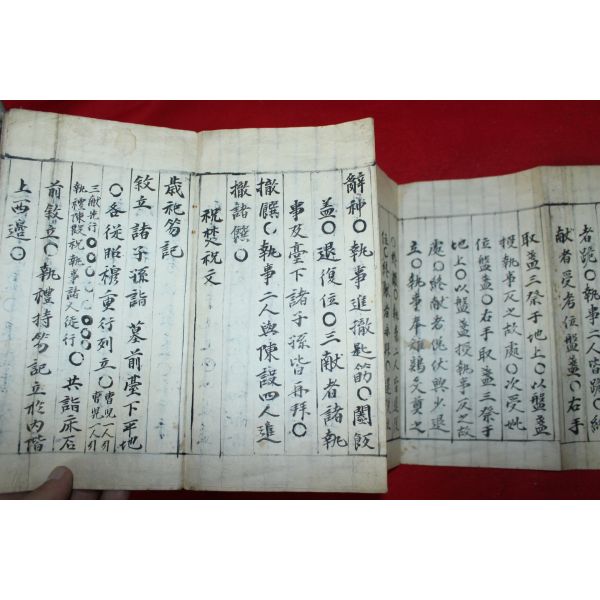 者跪〇執事二人皆跪〇終
献者受考位盤盞〇右手
取盞三祭于地上〇以盤盞
授執事反之故處〇次受妣
位盤盞〇右手取盞三祭于
地上〇以盤盞授執事反之故
處〇終献者俛伏興少退
立〇執事奉
辭神〇執事進撤匙筯〇闔飯
盖〇退復位〇三献者諸執
事及臺下諸子孫皆再拜〇
撤饌〇執事二人與陳設四人進
撤諸饌〇
祝焚祝文
歲祀笏記
敘立諸子孫詣 墓前臺下平地
〇各從昭穆重行列立〇
三献先行
執禮陳設祝執事諸人從行
〇共詣床石
前敘立〇執禮持笏記立於內階
上西邊〇